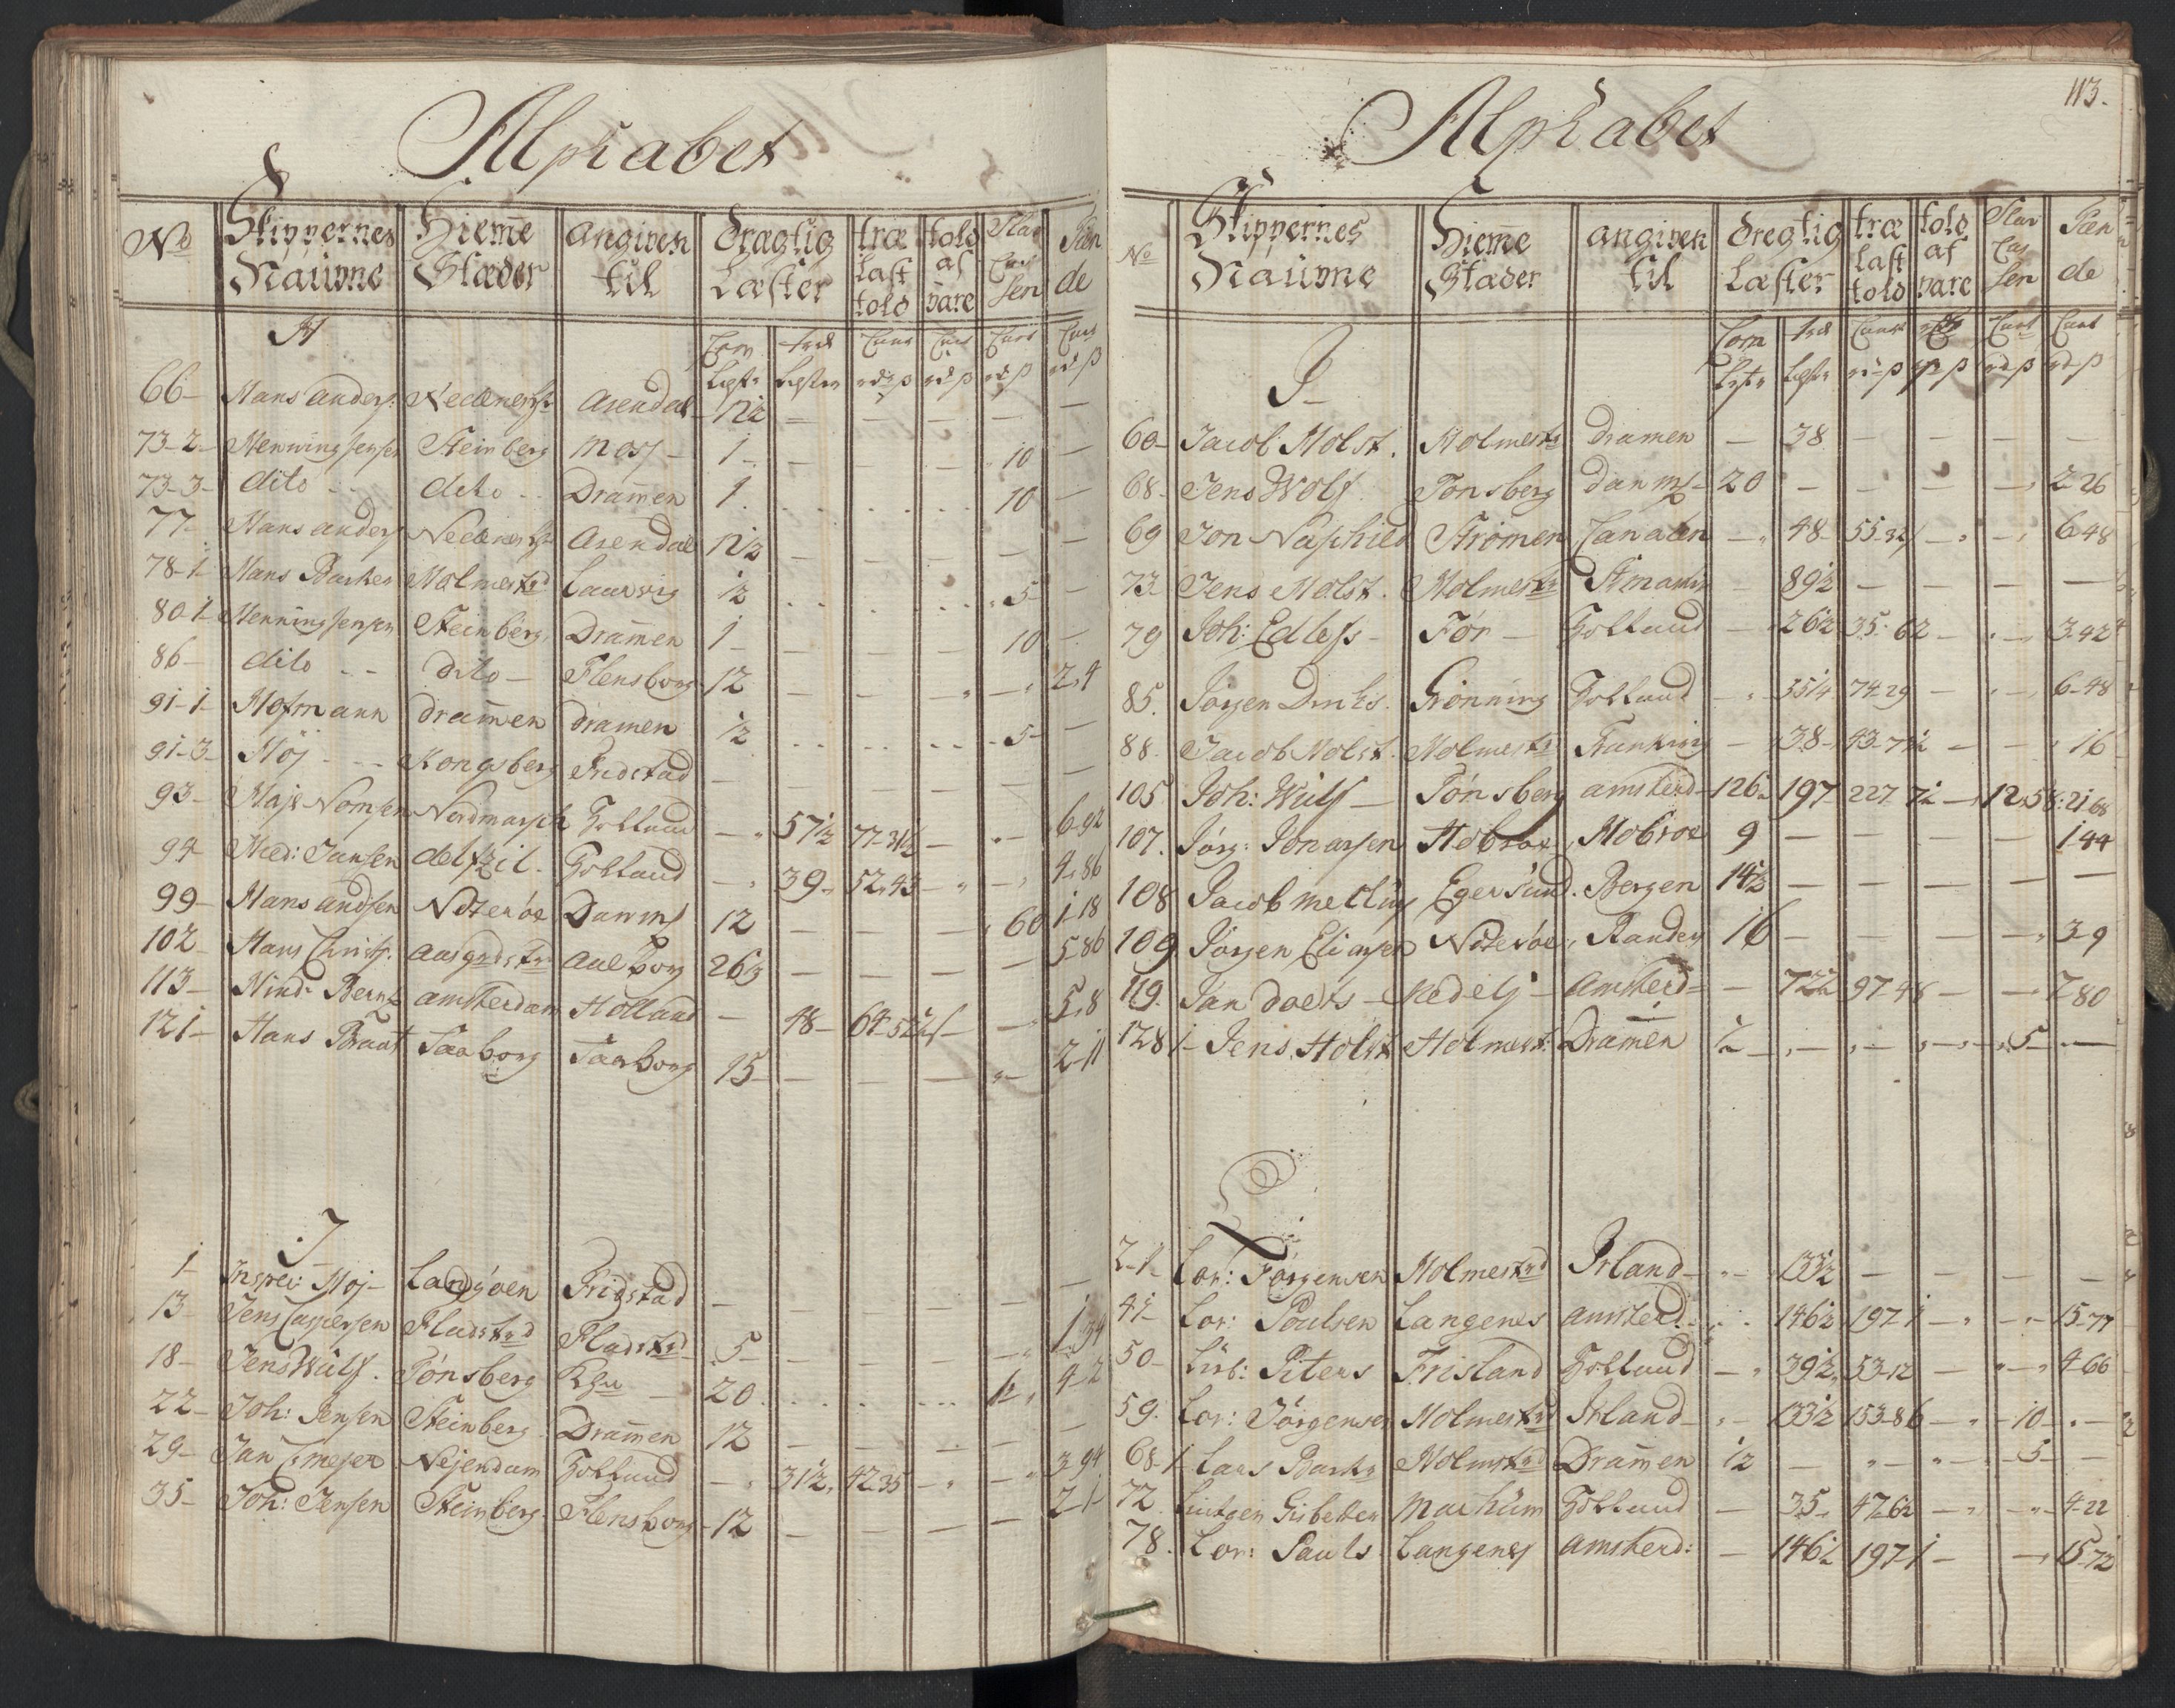 Alphabet
No Skippernes Naufne Hieme Stæder Angiven til Dragtig Læster træ Last told told af vare Slav Cas sen Tien de
H
Com Lester træ Lester Cour rd ß Cour rd ß Cour rd ß Cour rd ß
66 - Hans Anders: Nedenes Arendal - 7 1/2 - - - - -
73-2- Henning Jensen Steinberg Moss - 1 - - - - 10 -
73-3- dito - - dito - - Dramen 1 . . . . 10 -
77 - Hans Anders Nedenes Arendal 7 1/2 - - - - -
78-1- Hans Barker Holmestrd Laurvig 1/2 . . . . 5 -
80-1- Henning Jensen Steinberg Dramen 1 - - - - 10 -
86 - dito - - dito - Flensborg 12 - - - - 2,4
91-1- Hofmann Dramen Dramen 1/2 . . . . 5 -
91-3- Høj - - - Kongsberg Fridstad - - - - -
93 - Haje Nomsen Nordmarsch Holland - 57 1/2 77-31 1/2 - - 6-92
94 - Hed: Jansen delfzil - Holland - 39 - 52,43 - - 4,86
99 - Hans Andsen Nøterøe Danm 12 - - - 60 1-18
102 - Hans Christ: Aasgrdstr Aalborg 26 1/2 - - - - 5-86
113 - Hind: Bernt Amsterdam Holland - 48 - 64-52 1/2 - - 5,8
121 - Hans Braat Faaborg Faaborg 15 - - - - 2-11
J
1 - Inspec: Høj - Landgøen Fridstad - - - - - -
13 - Jens Caspersen Fladstrd Fladstrd 5 - - - - 1.34
18 - Jens Wulf . Tønsberg Khn - 20 . . . . 4-2
22 - Joh: Jensen Steinberg Dramen 12 - - - - -
29 - Jan C: meyer Nejendam Holland - 31 1/2, 42-35 - - 3,94
35 - Joh: Jensen Steinberg Flensborg - 12 - - - - 2-1-
113.
Alphabet
No Skippernes Naufne Hieme Stæder angiven til dregtig Læster træ Last told told af vare Slav Cas sen Tien de
Com Lester træ Lester Cour rd ß rd ß Cour rd ß Cour rd ß
J -
60 - Jacob Holst . Holmestr Dramen - 38 - - - -
68 - Jens Wolf Tonsberg danm - 20 - - - - 2-26
69 Jon Naschied Strømen Canalen - 48 - 55-32 - - 6-48
73 - Jens Holst . Holmestr - 89 1/2 - - - -
79 Joh: Edless - Før - Holland - 26 1/2 35-62 - - 3.42
85. Jørgen Dircks . Grønning Holland - 55 1/4 74-29 - - 6-48
88 - Jacob Holst . Holmestr - 38 - 43-7 1/2 - - 16
105 Joh: Wulf - Tønsberg amsterd - 126 1/2 197 227 7 1/2 - 12,58: 21 68
107. Jørg: Jonassen Hobroe Hobroe 9 - - - - 1 44
108 Jacob Egersund . Bergen 14 1/2 - - - - -
109 Jørgen Eliassen Nøterøe, Randers 16 - - - - 3-9
119. Jan Doeks - Kedels - Amsterd - - 72 1/2 97 48 - - 7 80
128 1 - Jens Holst Holmestr: Dramen 1/2 - - - - 5 - -
L
2-1- Lor: Jørgensen Holmestrd Irland - - 133 1/2 - - - -
41 - Lor: Poulsen Langenes amsterd . . 146 1/2 197-1 - - 15-77
50 - Lüb: Piters Frisland Holland - 39 1/2, 53-12 - - 4-66
59. Lor: Jørgensen Holmestrd Irland - - 133 1/2 153-86 - - 10 - -
68-1 Lars Barker Holmestrd Dramen 1/2 - - - - 5 - -
72 Lüitgen Holland - 35, 47-62 - - 4-22
78. Lor: Pauls Langenes Amsterd: - 146 1/2 197-1 - - 15-72